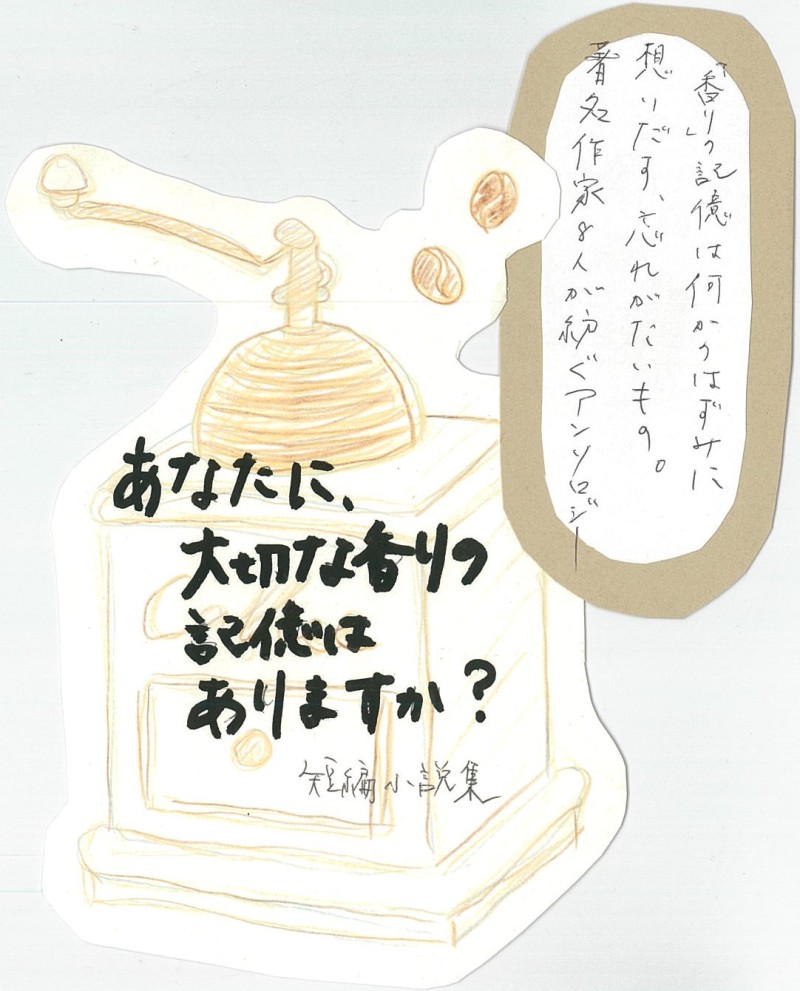 「香り」の記憶は何かのはずみに
想いだす、忘れがたいもの。
著名作家8人が紡ぐアンソロジー
あなたに、
大切な香りの
記憶は
ありますか?
短編小説集